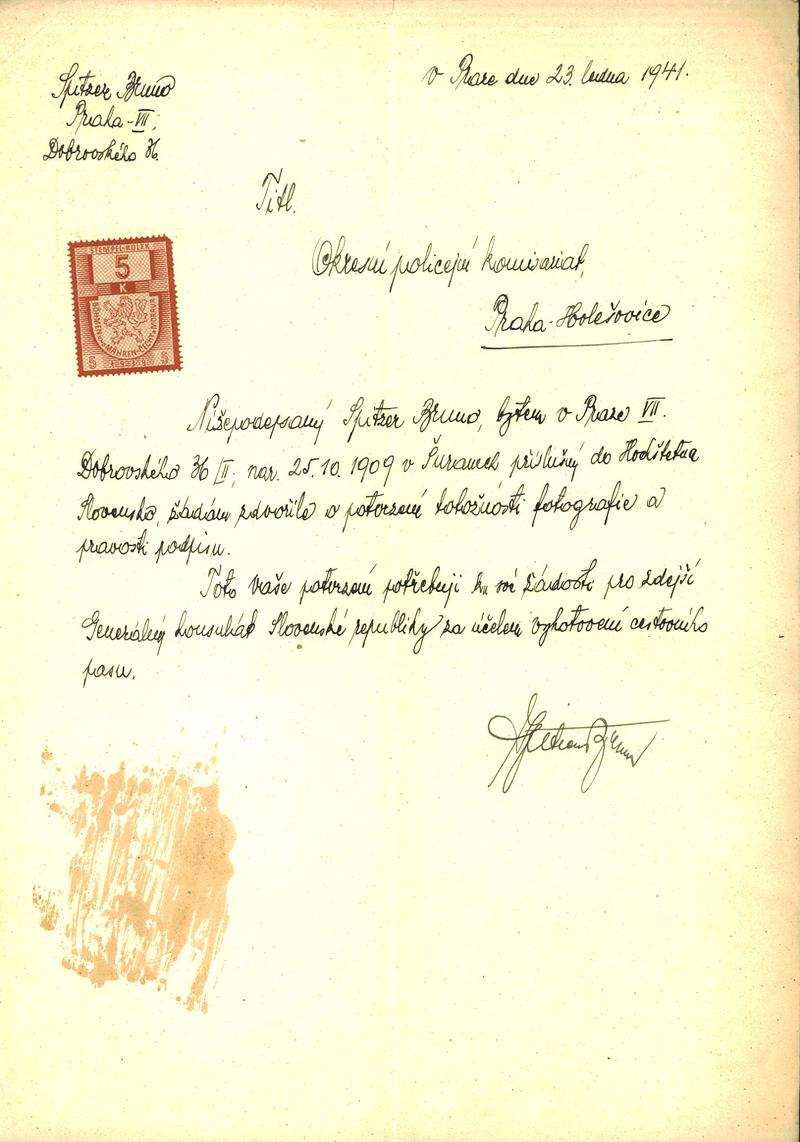 Spitzer Bruno
Praha-VII,
Dobrovského 36.
v Praze dne 23. ledna 1941.
Titl.
STEMPEL-KOLEK
5
K
BÖHMEN u. MÄHREN-ČECHY A MORAVA
5 5
Okresní policejní komisariat,
Praha-Holešovice
Nížepodepsaný Spitzer Bruno, bytem v Praze VII.
Dobrovského 36/II, nar. 25.10.1909 v Šuranech příslušný do Hochštetna
Slovensko, žádám zdvořile o potvrzení totožnosti fotografie a
pravosti podpisu.
Toto vaše potvrzení potřebuji ku své žádosti pro zdejší
Generálný konsulát Slovenské republiky za účelem vyhotovení cestovního
pasu.
Spitzer Bruno